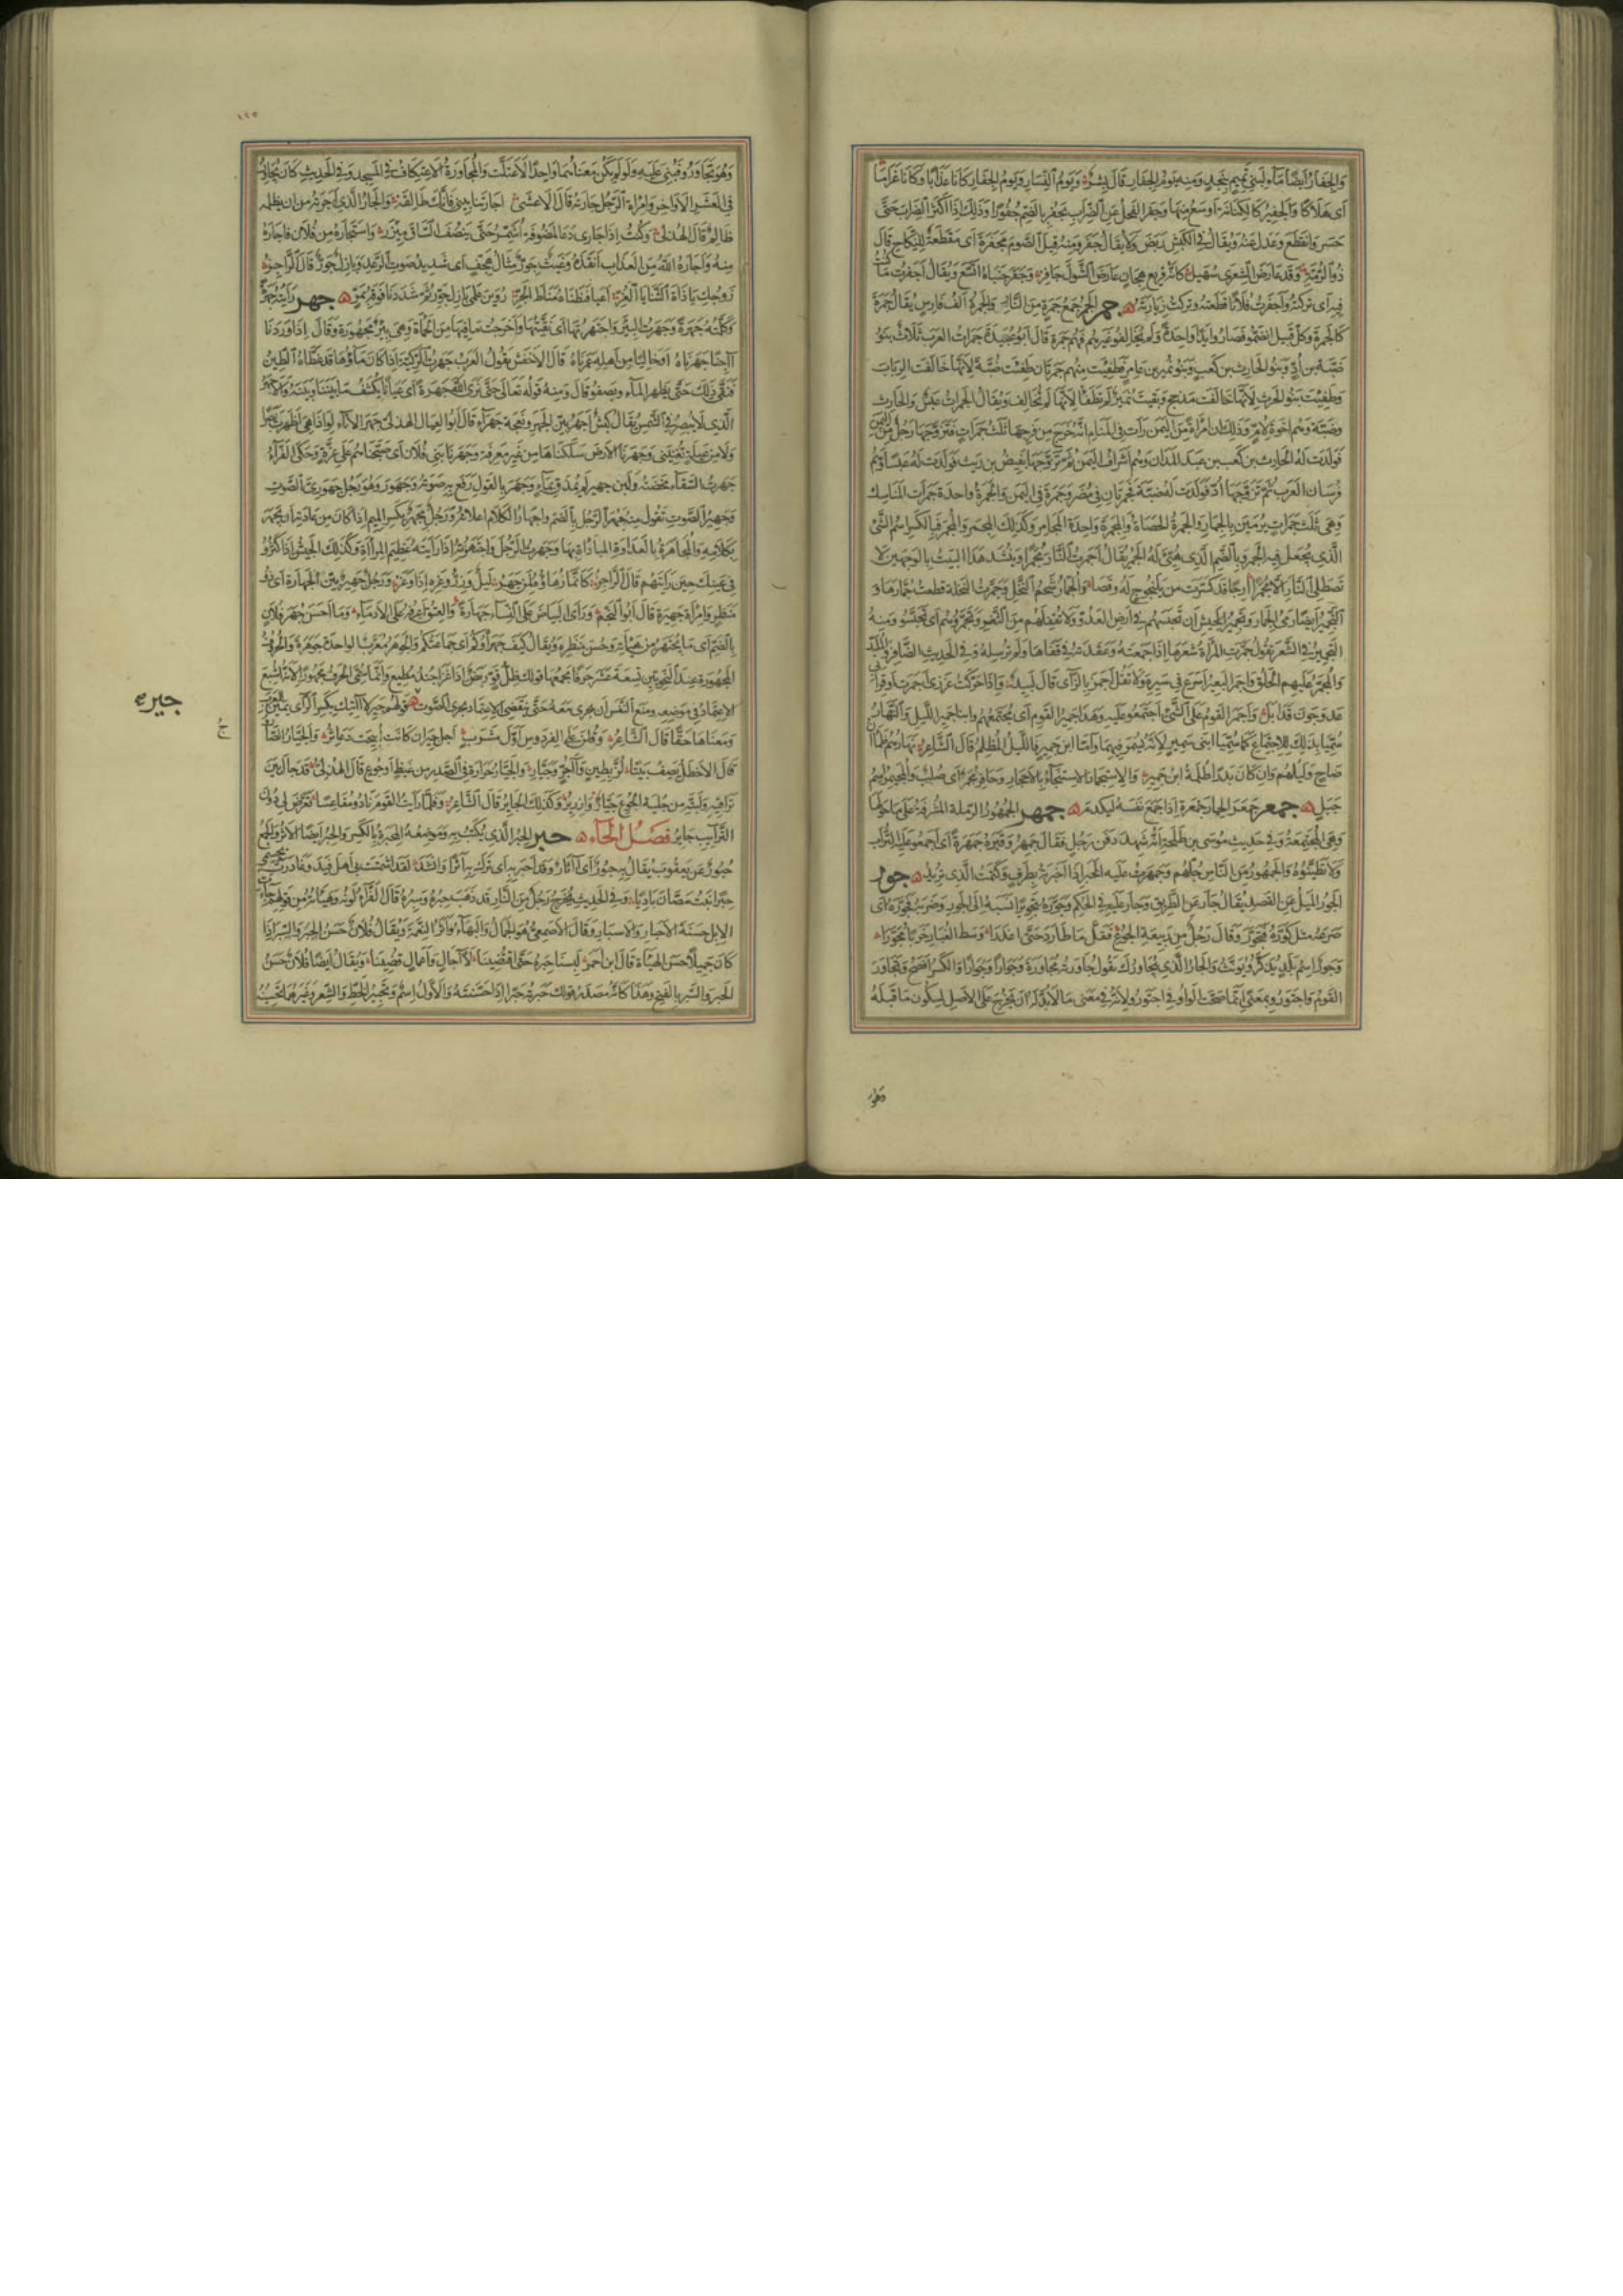 والجفار ايضا ماء لبنى تميم بنجد ومنه يوم الجفار قال بشر ويوم النسار ويوم الجفار كانا عذابا وكانا غراما
اى هلاكا والجفير كالكنانة اوسع منها وجفر الفحل عن الضراب يجفر بالضم جفورا وذلك اذا اكثر الضراب حتى
حسر وانقطع وعدل عنه ويقال فى الكبش ربض ولا يقال جفر ومنه قيل الصوم مجفرة اى مقطعة للنكاح قال
ذو الرمة وقد عارض الشعرى سهيل كانه قريع هجان عارض الشول جافر وجفر جنباه اتسع ويقال اجفرت ما كنت
فيه اى تركته واجفرت فلانا قطعته وتركت زيارته جمر الجمر جمع جمرة من النار والجمرة الف فارس يقال جمرة
كالجمرة وكل قبيل انضموا فصاروا يدا واحدة ولم يحالفوا غيرهم فهم جمرة قال ابو عبيدة جمرات العرب ثلاث بنو
ضبة بن اد وبنو الحارث بن كعب وبنو نمير بن عامر فطفئت منهم جمرتان طفئت ضبة لانها حالفت الرباب
وطفئت بنو الحرث لانها حالفت مذحج وبقيت نمير لم تطفا لانها لم تحالف ويقال الجمرات عبس والحارث
وضبة وهم اخوة لام وذلك ان امراة من اليمن رات فى المنام انه خرج من فرجها ثلث جمرات فتزوجها رجل من اليمن
فولدت له الحارث بن كعب بن عبد المدان وهم اشراف اليمن ثم تزوجها بغيض بن ريث فولدت له عبسا وهم
فرسان العرب ثم تزوجها اد فولدت له ضبة فجمرتان فى مضر وجمرة فى اليمن والجمرة واحدة جمرات المناسك
وهى ثلث جمرات يرمين بالجمار والجمرة الحصاة والمجمرة واحدة المجامر وكذلك المجمر والمجمر فبالكسر اسم الشئ
الذى يجعل فيه الجمر وبالضم الذى هيئ له الجمر يقال اجمرت النار مجمرا وينشد هذا البيت بالوجهين لا
تصطلى النار الا مجمرا ارجا قد كسرت من يلنجوج له وقصا والجمار شحم النخل وجمرت النخلة قطعت جمارها و
التجمير ايضا رمى الجمار وتجمير الجيش ان تحبسهم فى ارض العدو ولا تقفلهم من الثغر وتجمروا هم اى تحبسوا ومنه
التجمير فى الشعر تقول جمرت المراة شعرها اذا جمعته وعقدته فى قفاها ولم ترسله وفى الحديث الضافر والملبد
والمجمر عليهم الحلق واجمر البعير اسرع فى سيره ولا تقل اجمز بالزاى قال لبيد واذا حركت غرزى اجمرت او قرابى
عدو جون قد ابل واجمر القوم على الشئ اجتمعوا عليه وهذا جمير القوم اى مجتمعهم وابنا جمير الليل والنهار
سميا بذلك للاجتماع كما سميا ابنى سمير لانه يسمر فيهما واما ابن جمير فالليل المظلم قال الشاعر نهارهم ظمان
ضاح وليلهم وان كان بدرا ظلمة ابن جمير والاستجمار الاستنجاء بالاحجار وحافر مجمر اى صلب والمجيمر اسم
جبل جمعر جمعر الحمار جمعرة اذا جمع نفسه ليكدم جمهر الجمهور الرملة المشرفة على ما حولها
وهى المجتمعة وفى حديث موسى بن طلحة انه شهد دفن رجل فقال جمهروا قبره جمهرة اى اجمعوا عليه التراب
ولا تطينوه والجمهور من الناس جلهم وجمهرت عليه الخبر اذا اخبرته بطرف وكتمت الذى تريد جور
الجور الميل عن القصد يقال جار عن الطريق وجار عليه فى الحكم وجوره تجويرا نسبه الى الجور وضربه فجوره اى
صرعه مثل كوره فتجور وقال رجل من ربيعة الجوع فقل ما طارد حتى اغدرا وسط الغبار خربا مجورا
وجور اسم بلد يذكر ويؤنث والجار الذى يجاورك تقول جاورته مجاورة وجوارا وجوارا والكسر افصح وتجاور
القوم واجتوروا بمعنى انما صحت الواو فى اجتوروا لانه فى معنى ما لا بد له ان يخرج على الاصل لسكون ما قبله
وهو
وهو تجاوروا فبنى عليه ولو لم يكن معناهما واحدا لاعتلت والمجاورة الاعتكاف فى المسجد وفى الحديث كان يجاور
فى العشر الاواخر وامراة الرجل جارته قال الاعشى اجارتنا بينى فانك طالقة والجار الذى اجرته من ان يظلمه
ظالم قال الهذلى وكنت اذا جارى دعا لمضوفة اشمر حتى ينصف الساق مئزرى واستجاره من فلان فاجاره
منه واجاره الله من العذاب انقذه وغيث جور مثال هجف اى شديد صوت الرعد وبازل جور قال الراجز
زوجك يا ذات الثنايا الغر اعيا فنطناه مناط الجر دوين عكمى بازل جور ثم شددنا فوقه بمر جهر رايته جهرة
وكلمته جهرة وجهرت البئر واجتهرتها اى نقيتها واخرجت ما فيها من الحماة وهى بئر مجهورة وقال اذا وردنا
اجنا جهرناه او خاليا من اهله عمرناه قال الاخفش يقول العرب جهرت الركية اذا كان ماؤها قد غطاه الطين
فنقى ذلك حتى يظهر الماء ويصفو قال ومنه قوله تعالى حتى نرى الله جهرة اى عيانا يكشف ما بيننا وبينه والاجهر
الذى لا يبصر فى الشمس يقال كبش اجهر بين الجهر ونعجة جهراء قال ابو العيال الهذلى جهراء لا تالو اذا هى اظهرت بصرا
ولا من عيلة تغنينى وجهرنا الارض سلكناها من غير معرفة وجهرنا بنى فلان اى صبحناهم على غرة وحكى الفراء
جهرت السقاء مخضته ولبن جهير لم يمذق بماء وجهر بالقول رفع به صوته وجهور وهو رجل جهورى الصوت
وجهير الصوت تقول منه جهر الرجل بالضم واجهار الكلام اعلانه ورجل مجهر بكسر الميم اذا كان من عادته ان يجهر
بكلامه والمجاهرة بالعداوة المباداة بها وجهرت الرجل واجتهرته اذا رايته عظيم المراة وكذلك الجيش اذا كثروا
فى عينك حين رايتهم قال الراجز كانما زهاؤه لمن جهر ليل ورز وغره اذا وغر ورجل جهير بين الجهارة اى ذو
منظر وامراة جهيرة قال ابو النجم وارى البياض على النساء جهارة والعتق اعرفه على الادماء وما احسن جهر فلان
بالضم اى ما يجتهر من هيئته وحسن منظره ويقال كيف جهراؤكم اى جماعتكم والجوهر معرب الواحدة جوهرة والحروف
المجهورة عند النحويين تسعة عشر حرفا يجمعها قولك ظل قو ربض اذ غزا جند مطيع وانما سمى الحرف مجهورا لانه اشبع
الاعتماد فى موضعه ومنع النفس ان يجرى معه حتى ينقضى الاعتماد بجرى الصوت قولهم جير لا اتيك بكسر الراى يمين للعرب
ومعناها حقا قال الشاعر وقلن على الفردوس اول مشرب اجل جير ان كانت ابيحت دعاثره والجيار الصاروج
قال الاخطل يصف بيتا لز بطين واجر وجيار والجيار حرارة فى الصدر من غيظ او جوع قال الهذلى قد حال بين
تراقيه ولبته من جلبة الجوع جيار وارزيز وكذلك الجائر قال الشاعر فلما رايت القوم نادوا مقاعسا تعرض لى دون
الترائب جائر فصل الحاء حبر الحبر الذى يكتب به وموضعه المحبرة بالكسر والحبر ايضا الاثر والجمع
حبور عن يعقوب يقال به حبور اى اثار وقد احبر به اى ترك به اثرا وانشد لقد اشمتت بى اهل فيد وغادرت بجسمى
حبرا بنت مصان باديا وفى الحديث يخرج رجل من النار قد ذهب حبره وسبره قال الفراء لونه وهيئاته من قولهم جاءت
الابل حسنة الاحبار والاسبار وقال الاصمعى هو الجمال والبهاء واثر النعمة ويقال فلان حسن الحبر والسبر اذا
كان جميلا حسن الهيئة قال ابن احمر لبسنا حبره حتى اقتضينا لاجال واعمال قضينا ويقال ايضا فلان حسن
الحبر والسبر بالفتح وهذا كانه مصدر قولك حبرته حبرا اذا حسنته والاول اسم وتحبير الخط والشعر وغيرهما تحسينه
جيره
ج